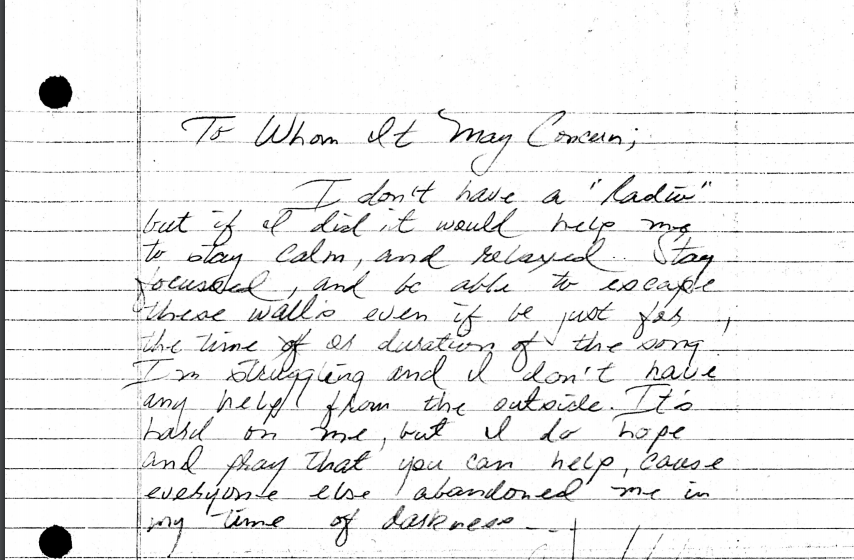 To Whom It May Concern;
I don't have a "Radio"
but if I did it would help me
to stay calm, and relaxed. Stay
focused, and be able to escape
these walls even if be just for,
the time of or duration of the song
I'm struggling and I don't have
any help from the outside. It's
hard on me, but I do hope
and pray that you can help, cause
everyone else abandoned me in
my time of darkness--